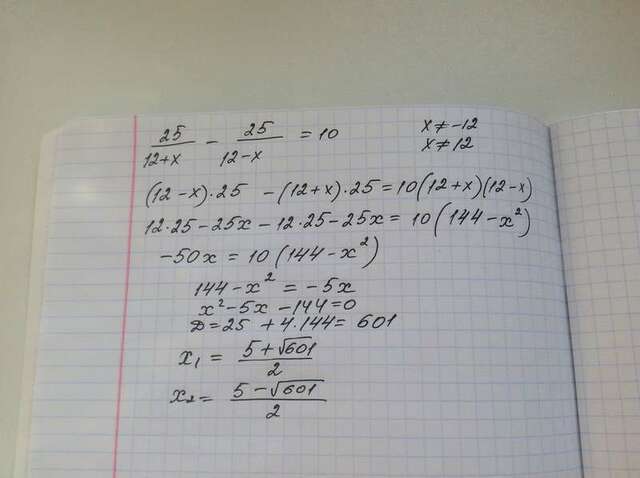 25/(12+x) - 25/(12-x) = 10 x≠-12
x≠12
(12-x)·25 - (12+x)·25 = 10(12+x)(12-x)
12·25-25x-12·25-25x = 10(144-x²)
-50x = 10(144-x²)
144-x² = -5x
x²-5x-144=0
D=25 +4·144= 601
x₁ = (5+√601)/2
x₂= (5-√601)/2